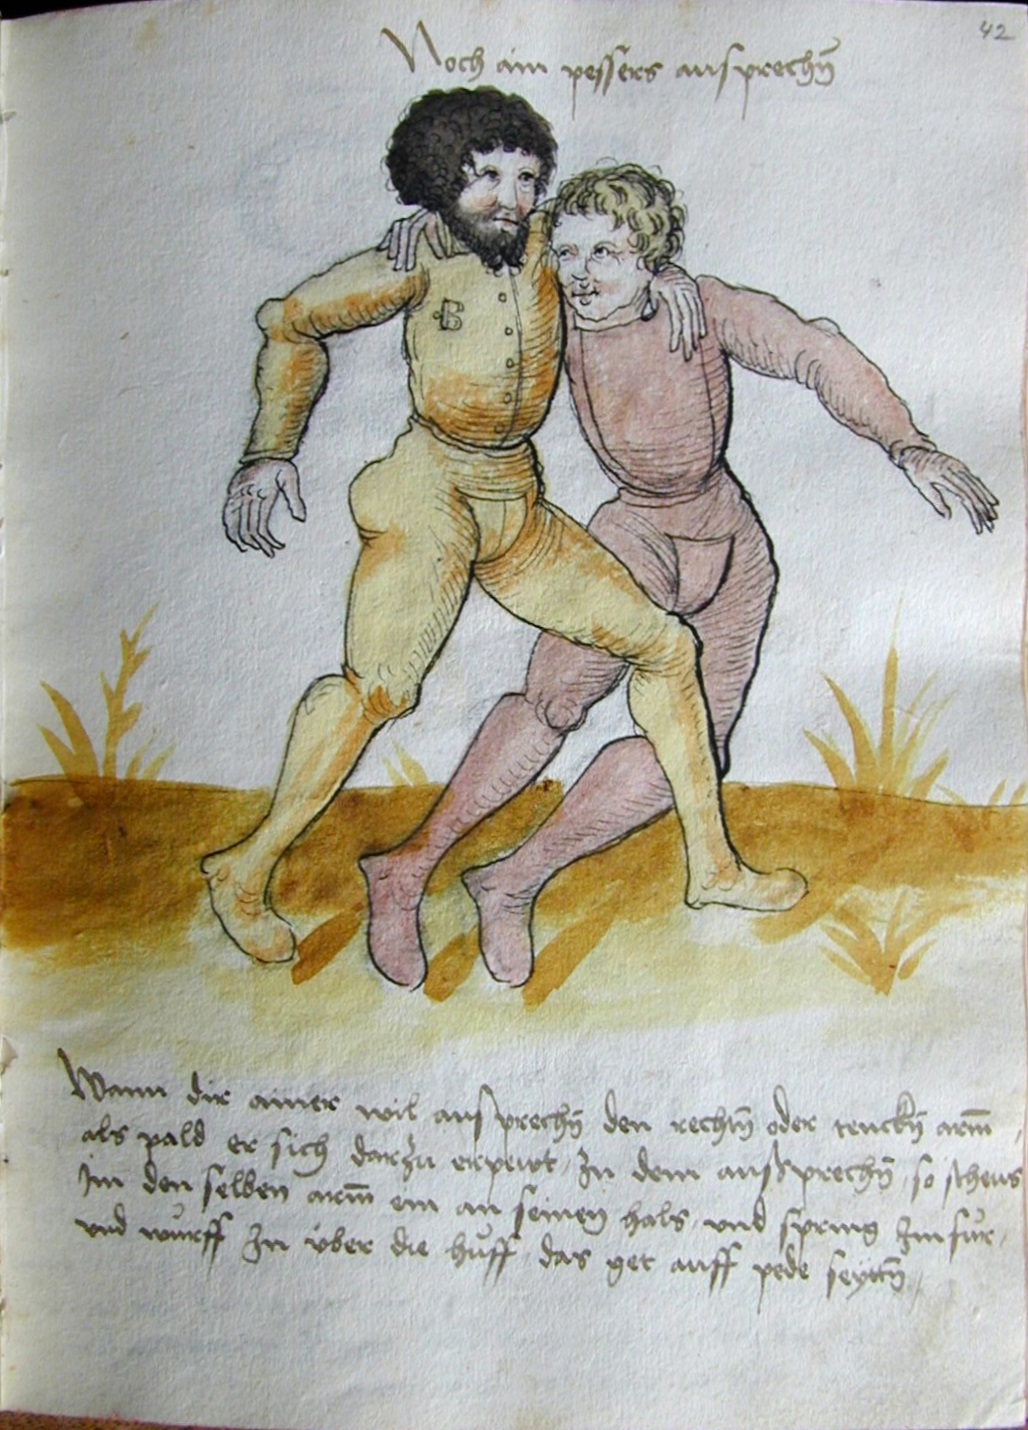 42
Noch ain pessers ausprechñ
B
Wann dir ainer wil ausprechñ den rechtñ oder tenckñ arm̄ /
als pald er sich darzu erpewt / In dem ausprechñ / so scheus
Im den selben arm̄ ein an seinen hals / und spring Im fur /
und wurff In über die huff / das get auff pede seyttñ /